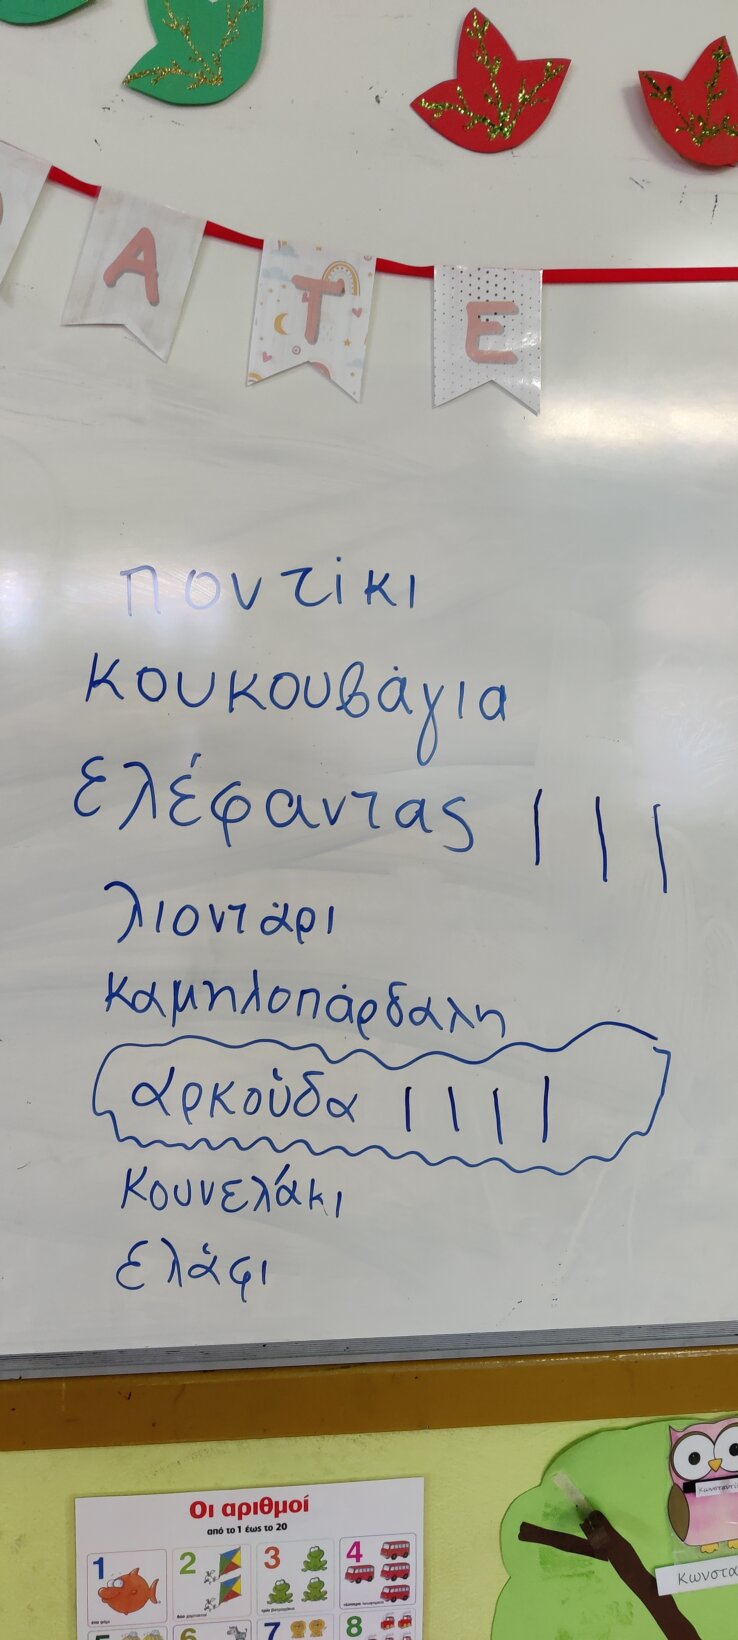 Α Τ Ε
ποντίκι
κουκουβάγια
ελέφαντας | | |
λιοντάρι
καμηλοπάρδαλη
αρκούδα | | | |
κουνελάκι
ελάφι
Οι αριθμοί
από το 1 έως το 20
1 2 3 4
7 8